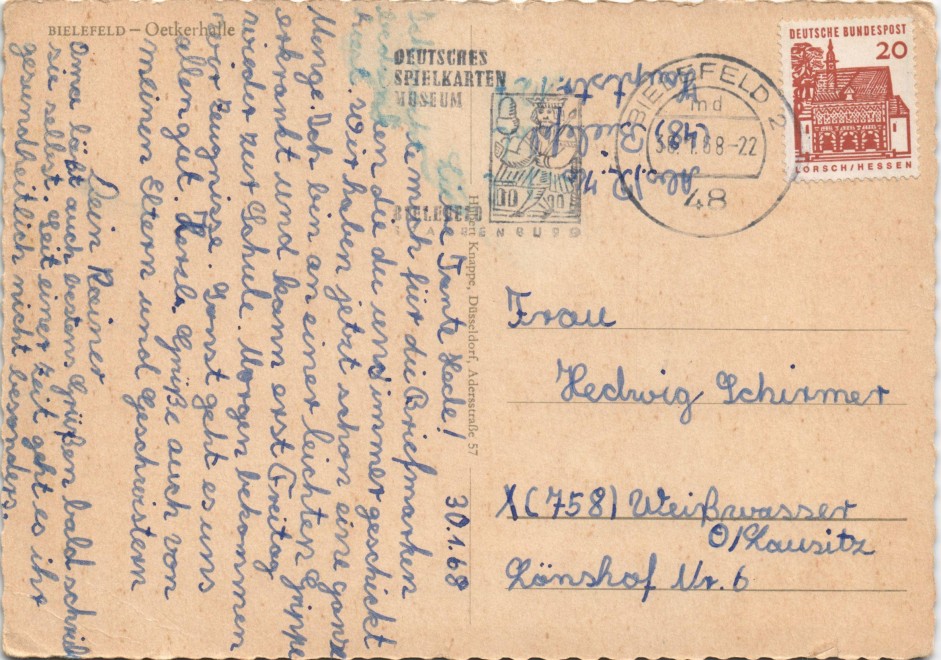 BIELEFELD – Oetkerhalle
30.1.68
Liebe Tante Hede!
möchte mich für die Briefmarken
den die du uns immer geschickt
hast. Wir haben jetzt schon eine ganze
Menge. Doch bin an einer leichten Grippe
erkrankt und kann erst Freitag
wieder zur Schule. Morgen bekommen
wir Zeugnisse. Sonst geht es uns
allen gut. Herzl. Grüße auch von
meinen Eltern und Geschwistern
Dein Rainer
Oma läßt auch bestens Grüßen bald schreibt
sie selbst. Seit einer Zeit geht es ihr
gesundheitlich nicht besonders.
Hubert Knappe, Düsseldorf, Adersstraße 57
Abs. R.
(48) Bielef
Hauptstr.
DEUTSCHES
SPIELKARTEN
MUSEUM
BIELEFELD
BIELEFELD 2
md
30.1.68-22
48
DEUTSCHE BUNDESPOST
20
LORSCH/HESSEN
Frau
Hedwig Schirmer
X(758) Weißwasser
O/Lausitz
Lönshof Nr. 6